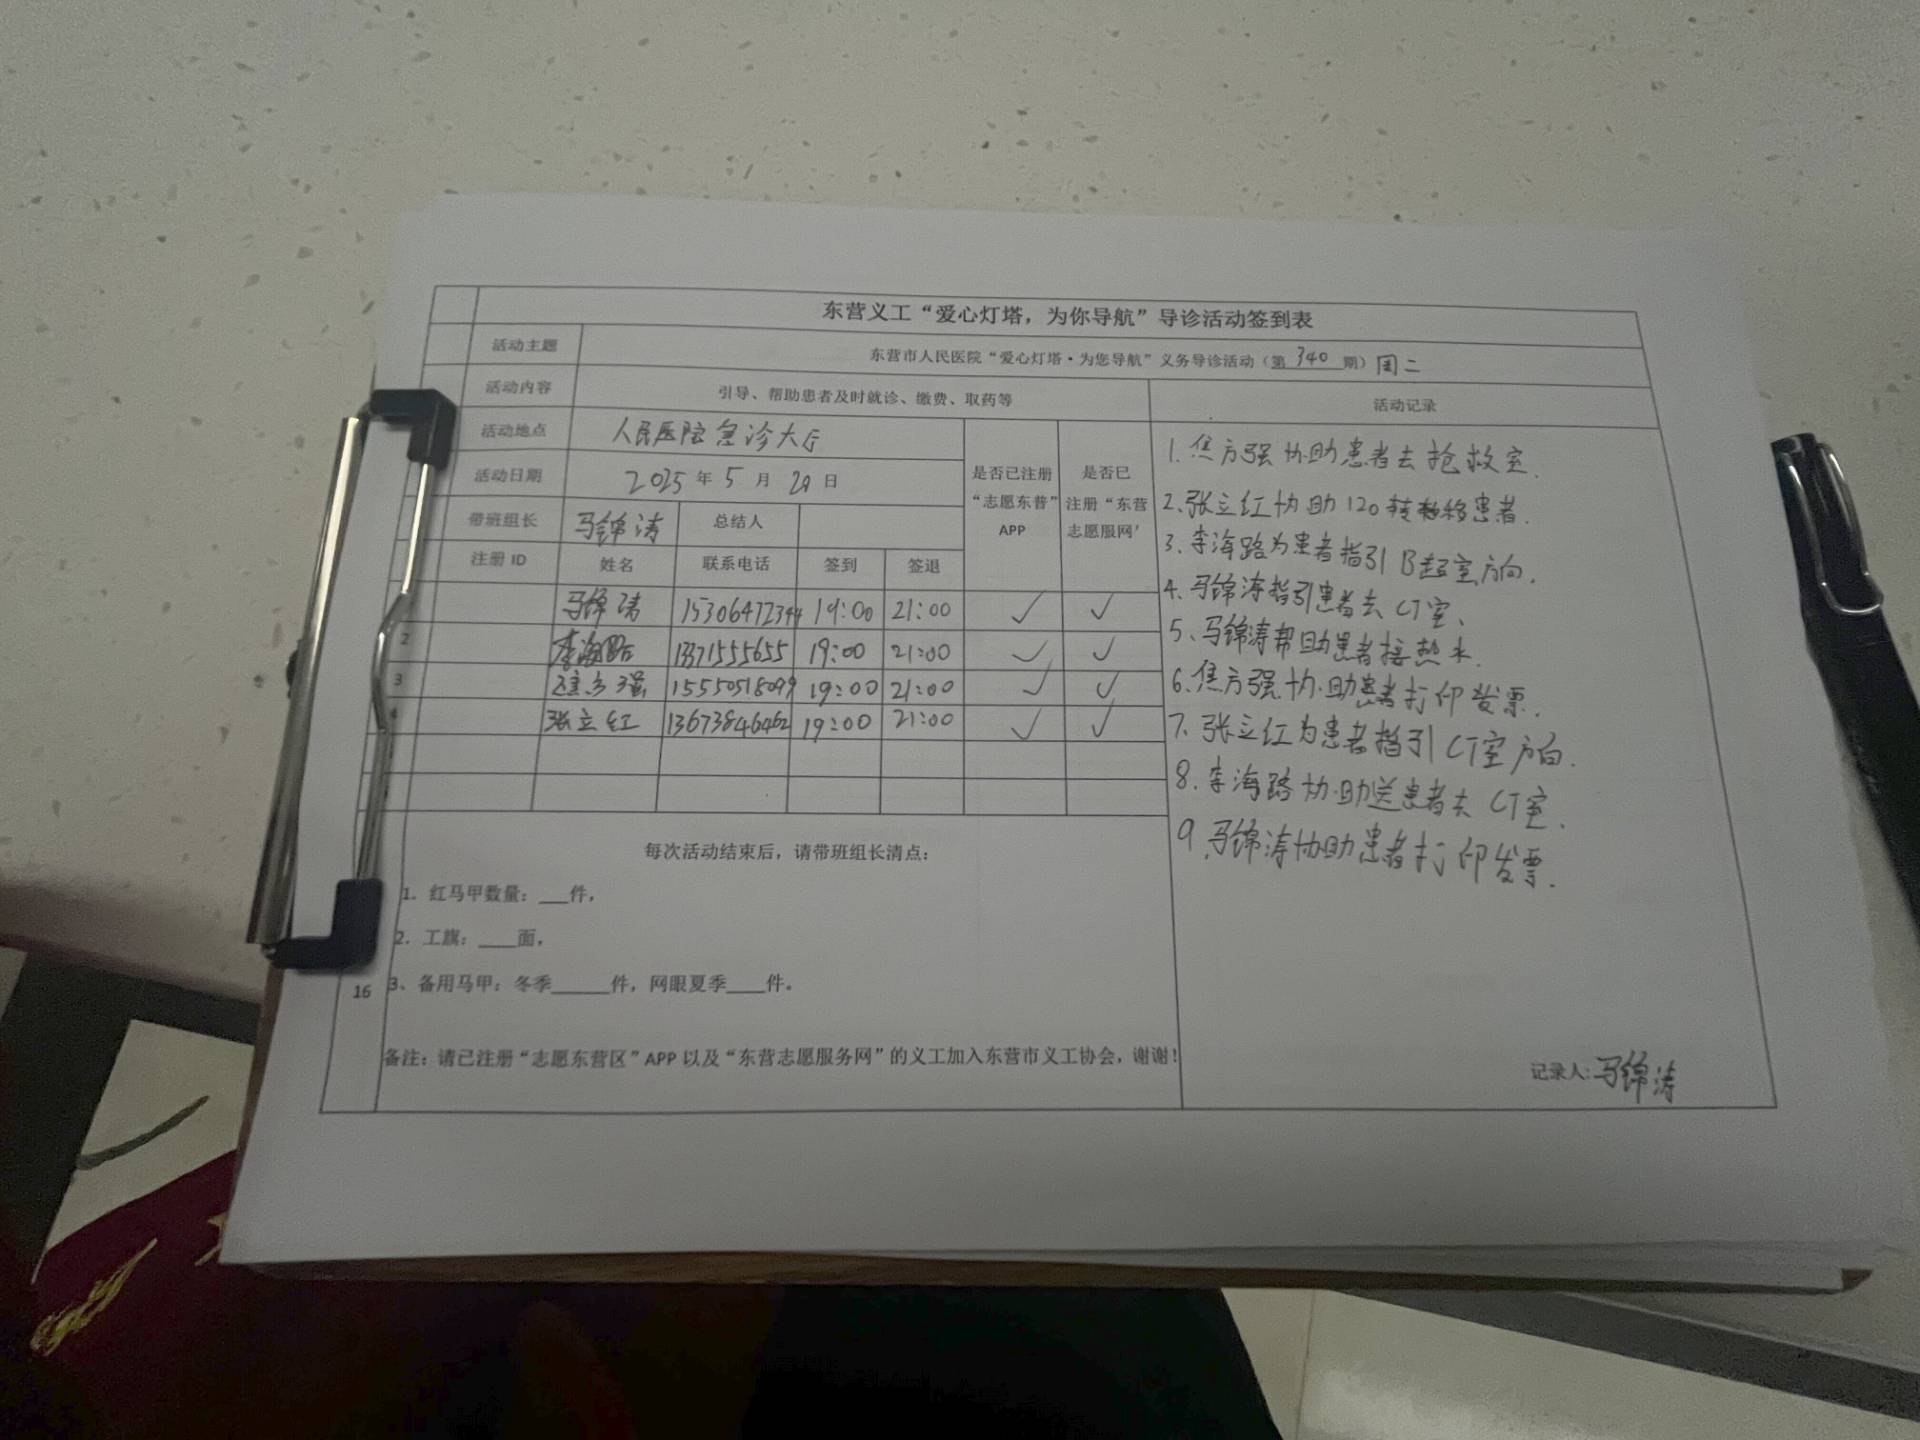 东营义工“爱心灯塔，为你导航”导诊活动签到表
活动主题 东营市人民医院“爱心灯塔·为您导航”义务导诊活动（第 340 期）周二
活动内容 引导、帮助患者及时就诊、缴费、取药等 活动记录
活动地点 人民医院急诊大厅
活动日期 2025 年 5 月 20 日
带班组长 马锦涛 总结人
是否已注册“志愿东普”APP
是否已注册“东营志愿服网'
注册 ID 姓名 联系电话 签到 签退
马锦涛 15306472344 19:00 21:00 ✓ ✓
2 李海路 13371555655 19:00 21:00 ✓ ✓
3 焦方强 15550518099 19:00 21:00 ✓ ✓
4 张立红 13673846462 19:00 21:00 ✓ ✓
1. 焦方强协助患者去抢救室.
2. 张立红协助120转移患者.
3. 李海路为患者指引B超室方向.
4. 马锦涛指引患者去CT室.
5、马锦涛帮助患者接热水.
6. 焦方强协助患者打印发票.
7. 张立红为患者指引CT室方向.
8. 李海路协助送患者去CT室.
9. 马锦涛协助患者打印发票.
每次活动结束后，请带班组长清点：
1. 红马甲数量：___件，
2. 工旗：____面，
16 3、备用马甲：冬季______件，网眼夏季____件。
备注：请已注册“志愿东营区”APP 以及“东营志愿服务网”的义工加入东营市义工协会，谢谢！
记录人:马锦涛